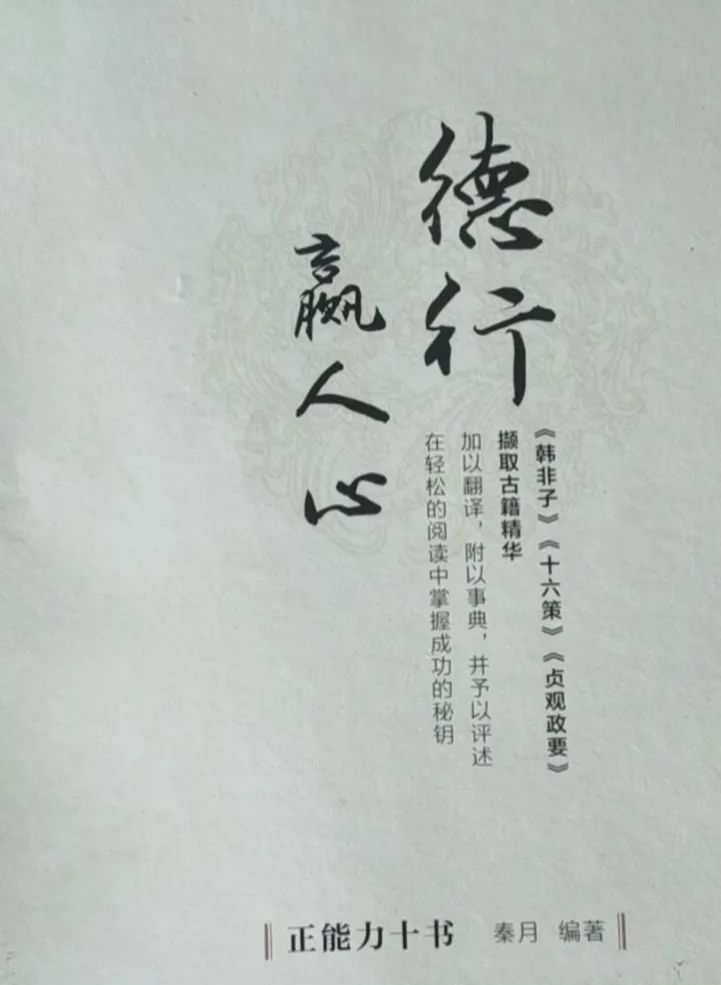 德行
赢人心
《韩非子》《十六策》《贞观政要》
撷取古籍精华
加以翻译，附以事典，并予以评述
在轻松的阅读中掌握成功的秘钥
正能力十书 秦月 编著